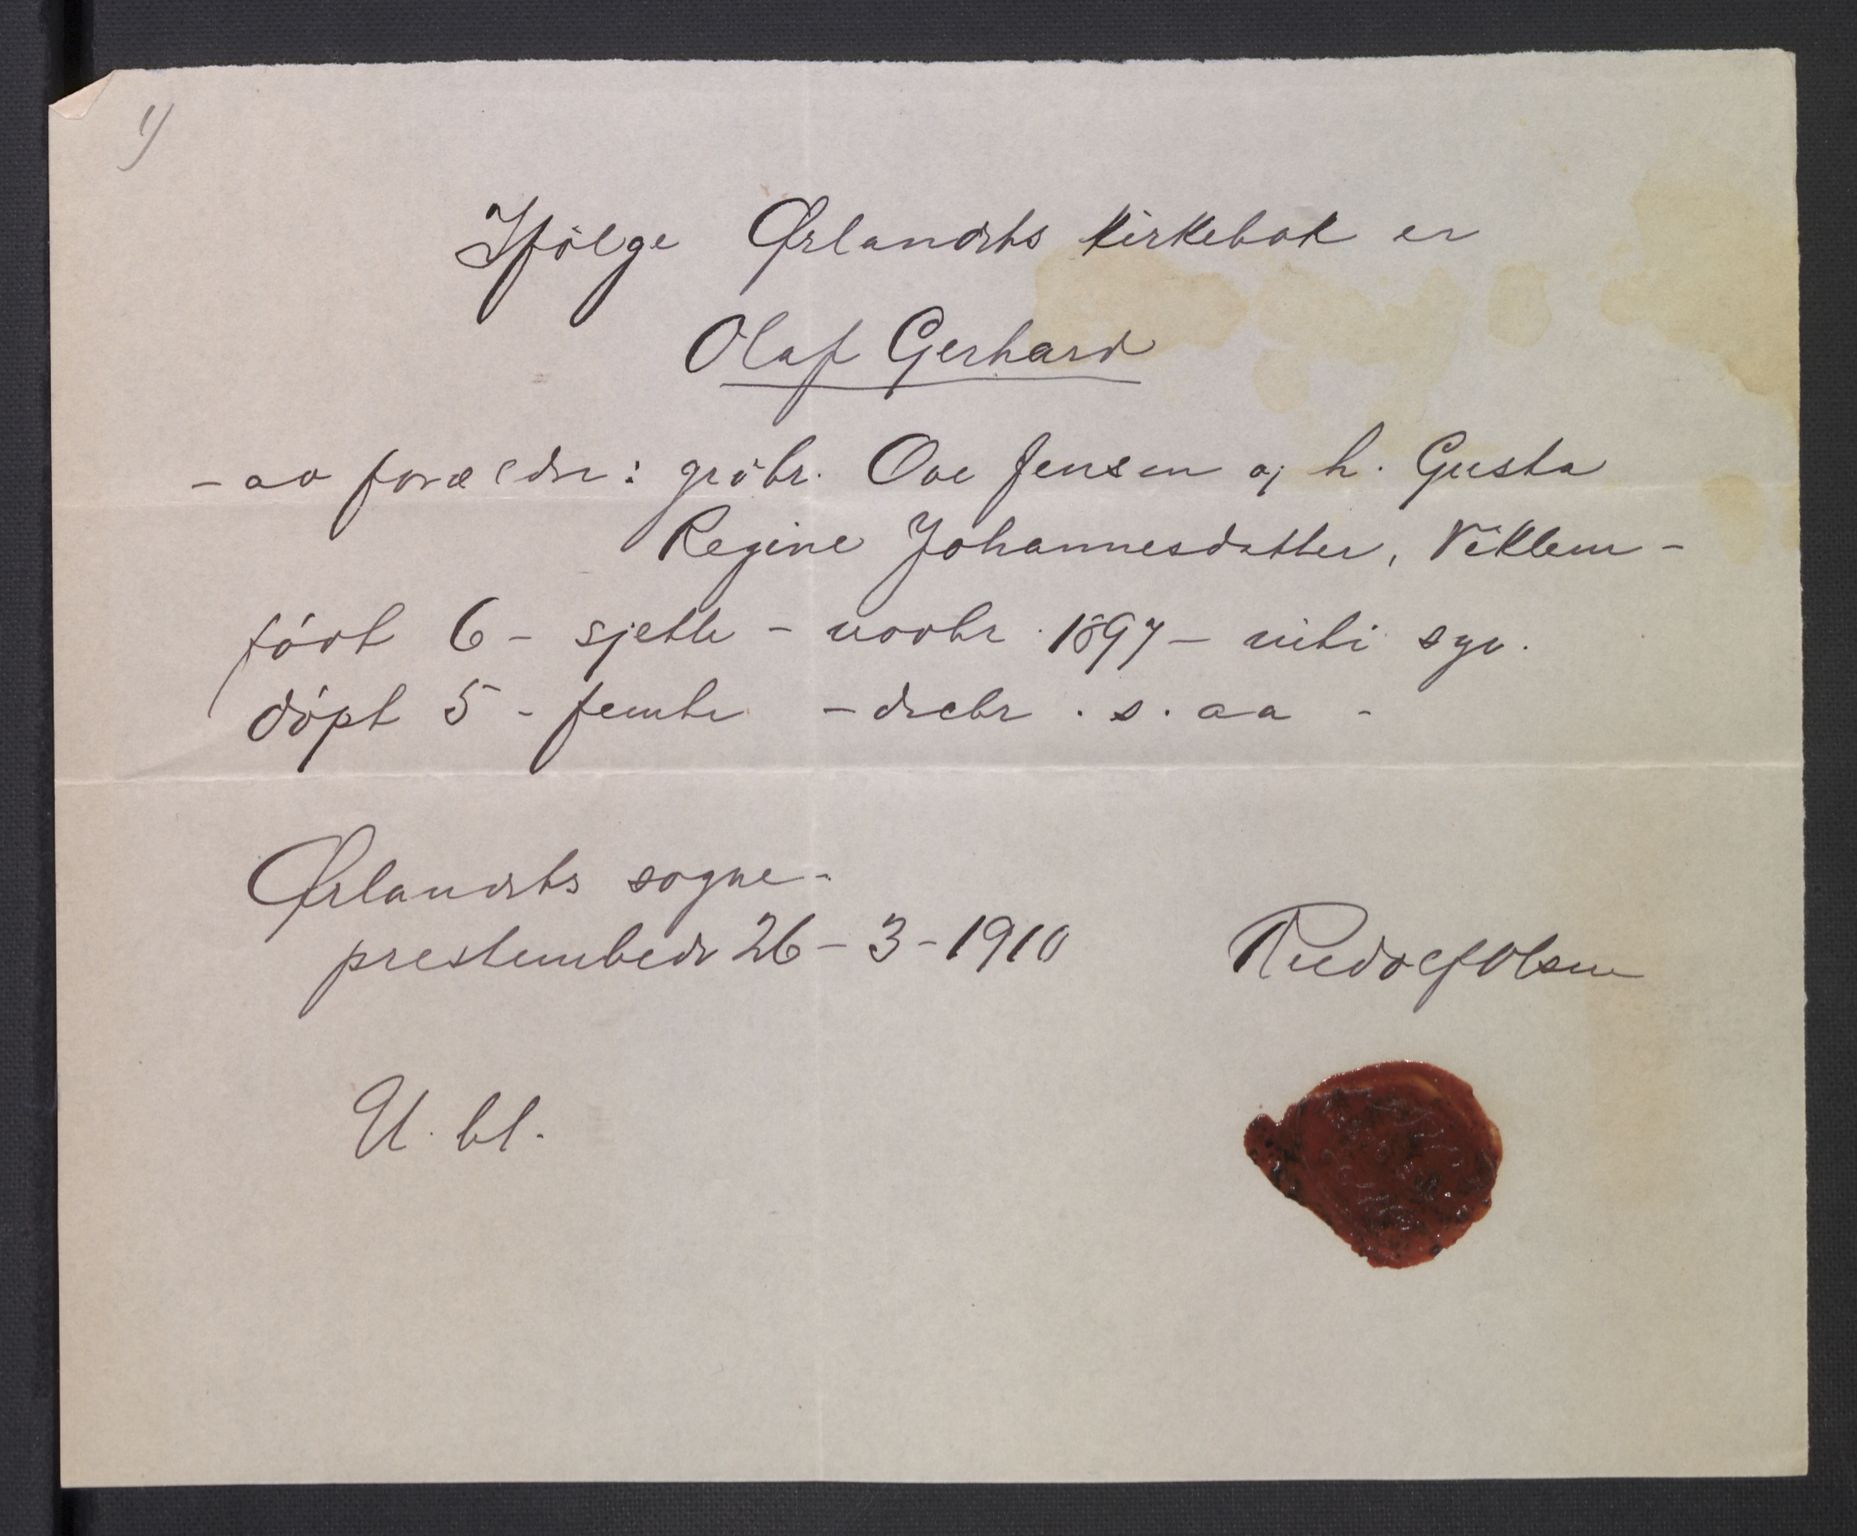 1)
Ifølge Ørlandets kirkebok er
Olaf Gerhard
- av forældre: grdbr. Ove Jensen og h. Gusta
Regine Johannesdatter, Viklem -
født 6 - sjette - novbr. 1897 - niti syv.
døpt 5 - femte - decbr. s. aa -
Ørlandets sogne-
prestembede 26 - 3 - 1910
Rudolf Olsen
U. bl.